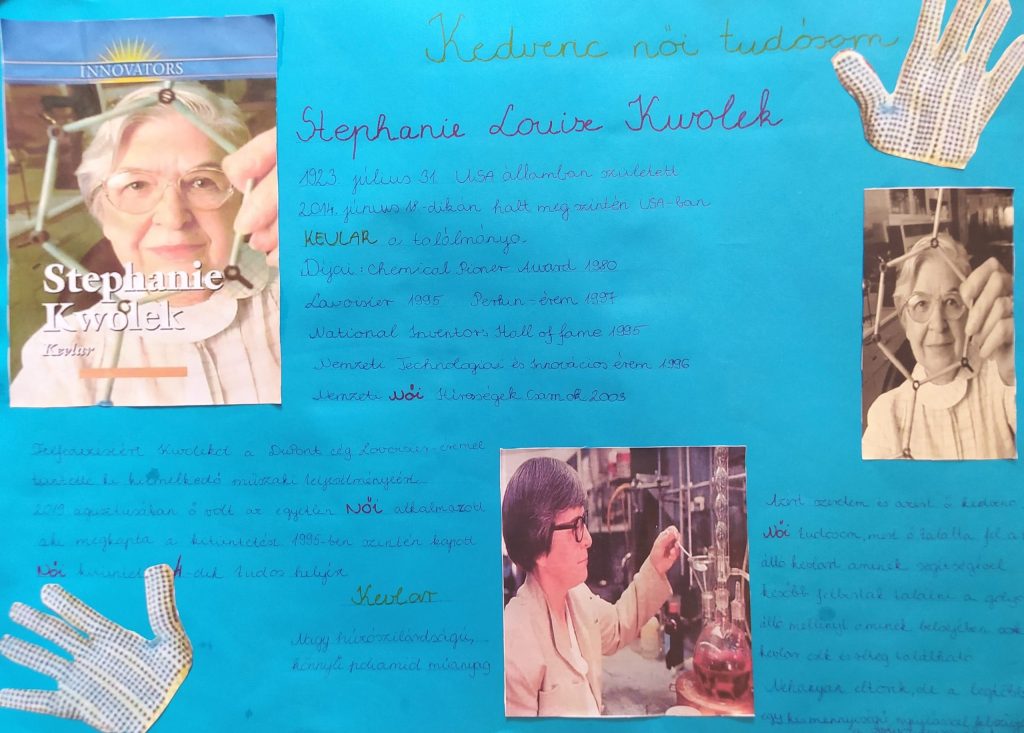 Kedvenc női tudósom
INNOVATORS
Stephanie
Kwolek
Kevlar
Stephanie Louise Kwolek
1923. július 31. USA államban született
2014. június 18-dikán halt meg szintén USA-ban
KEVLAR a találmánya.
Díjai: Chemical Pioner Award 1980
Lavoisier 1995 Perkin-érem 1997
National Inventors Hall of fame 1995
Nemzeti Technológiai és Innovációs érem 1996
Nemzeti Női Hírességek Csarnok 2003
Felfedezéséért Kwoleket a DuPont cég Lavoisier-éremmel
tüntette ki kiemelkedő műszaki teljesítményéért.
2019 agusztusában ő volt az egyetlen Női alkalmazott
aki megkapta a kitüntetést 1995-ben szintén kapott
Női -dik tudós helyén
Kevlar
Nagy húzószilárdságú,
könnyű poliamid műanyag
Azért szeretem és azért ő kedvenc
Női tudósom, mert ő találta fel a
álló kevlárt aminek segítségével
később feltudták találni a golyó
álló mellényt aminek belsejében
kevlar és réteg található.
Néhányan eltönk, de a legtöbb
egy kis mennyiségű